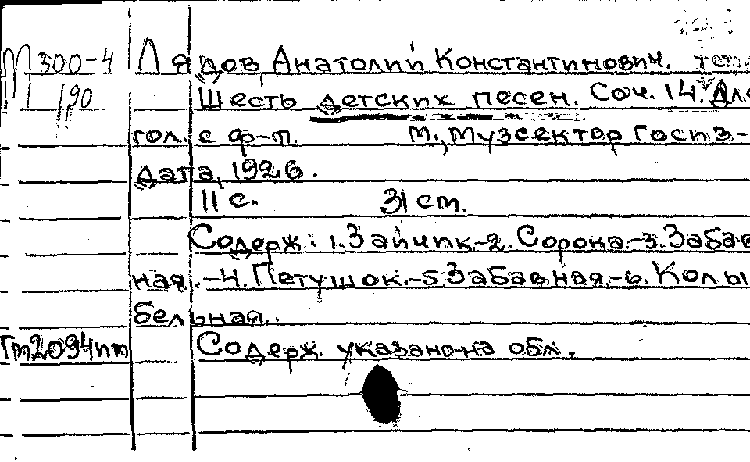 М 300-4 Лядов, Анатолий Константинович.
190 Шесть детских песен. Соч. 14. Для
гол. с ф-п. М., Музсектор Госиз-
дата, 1926.
11 с. 31 см.
Содерж: 1. Зайчик.-2. Сорока.-3. Забав
ная.-4. Петушок.-5. Забавная.-6. Колы
бельная.
Содерж. указано на обл.